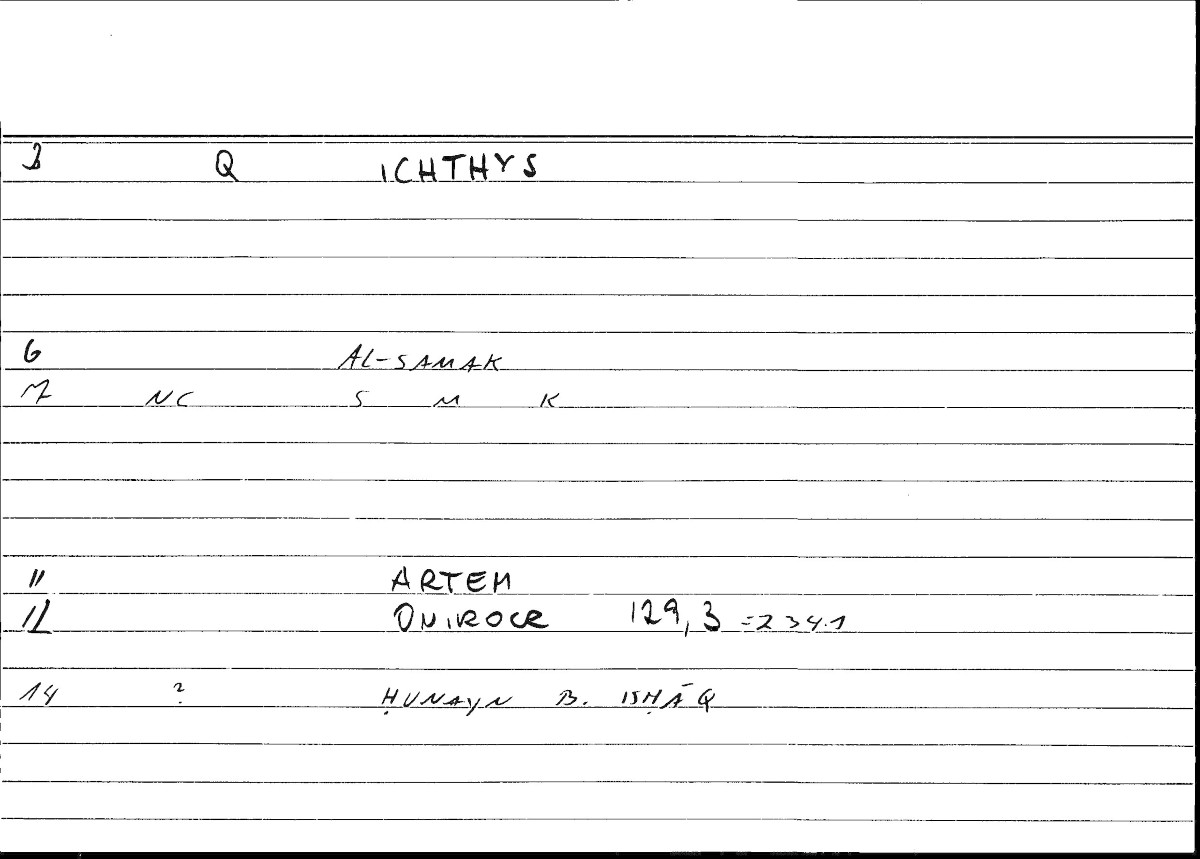 3 Q ICHTHYS
6 AL-SAMAK
7 NC S M K
11 ARTEM
12 ONIROCR 129,3 =234.1
14 ? ḤUNAYN B. ISḤĀQ